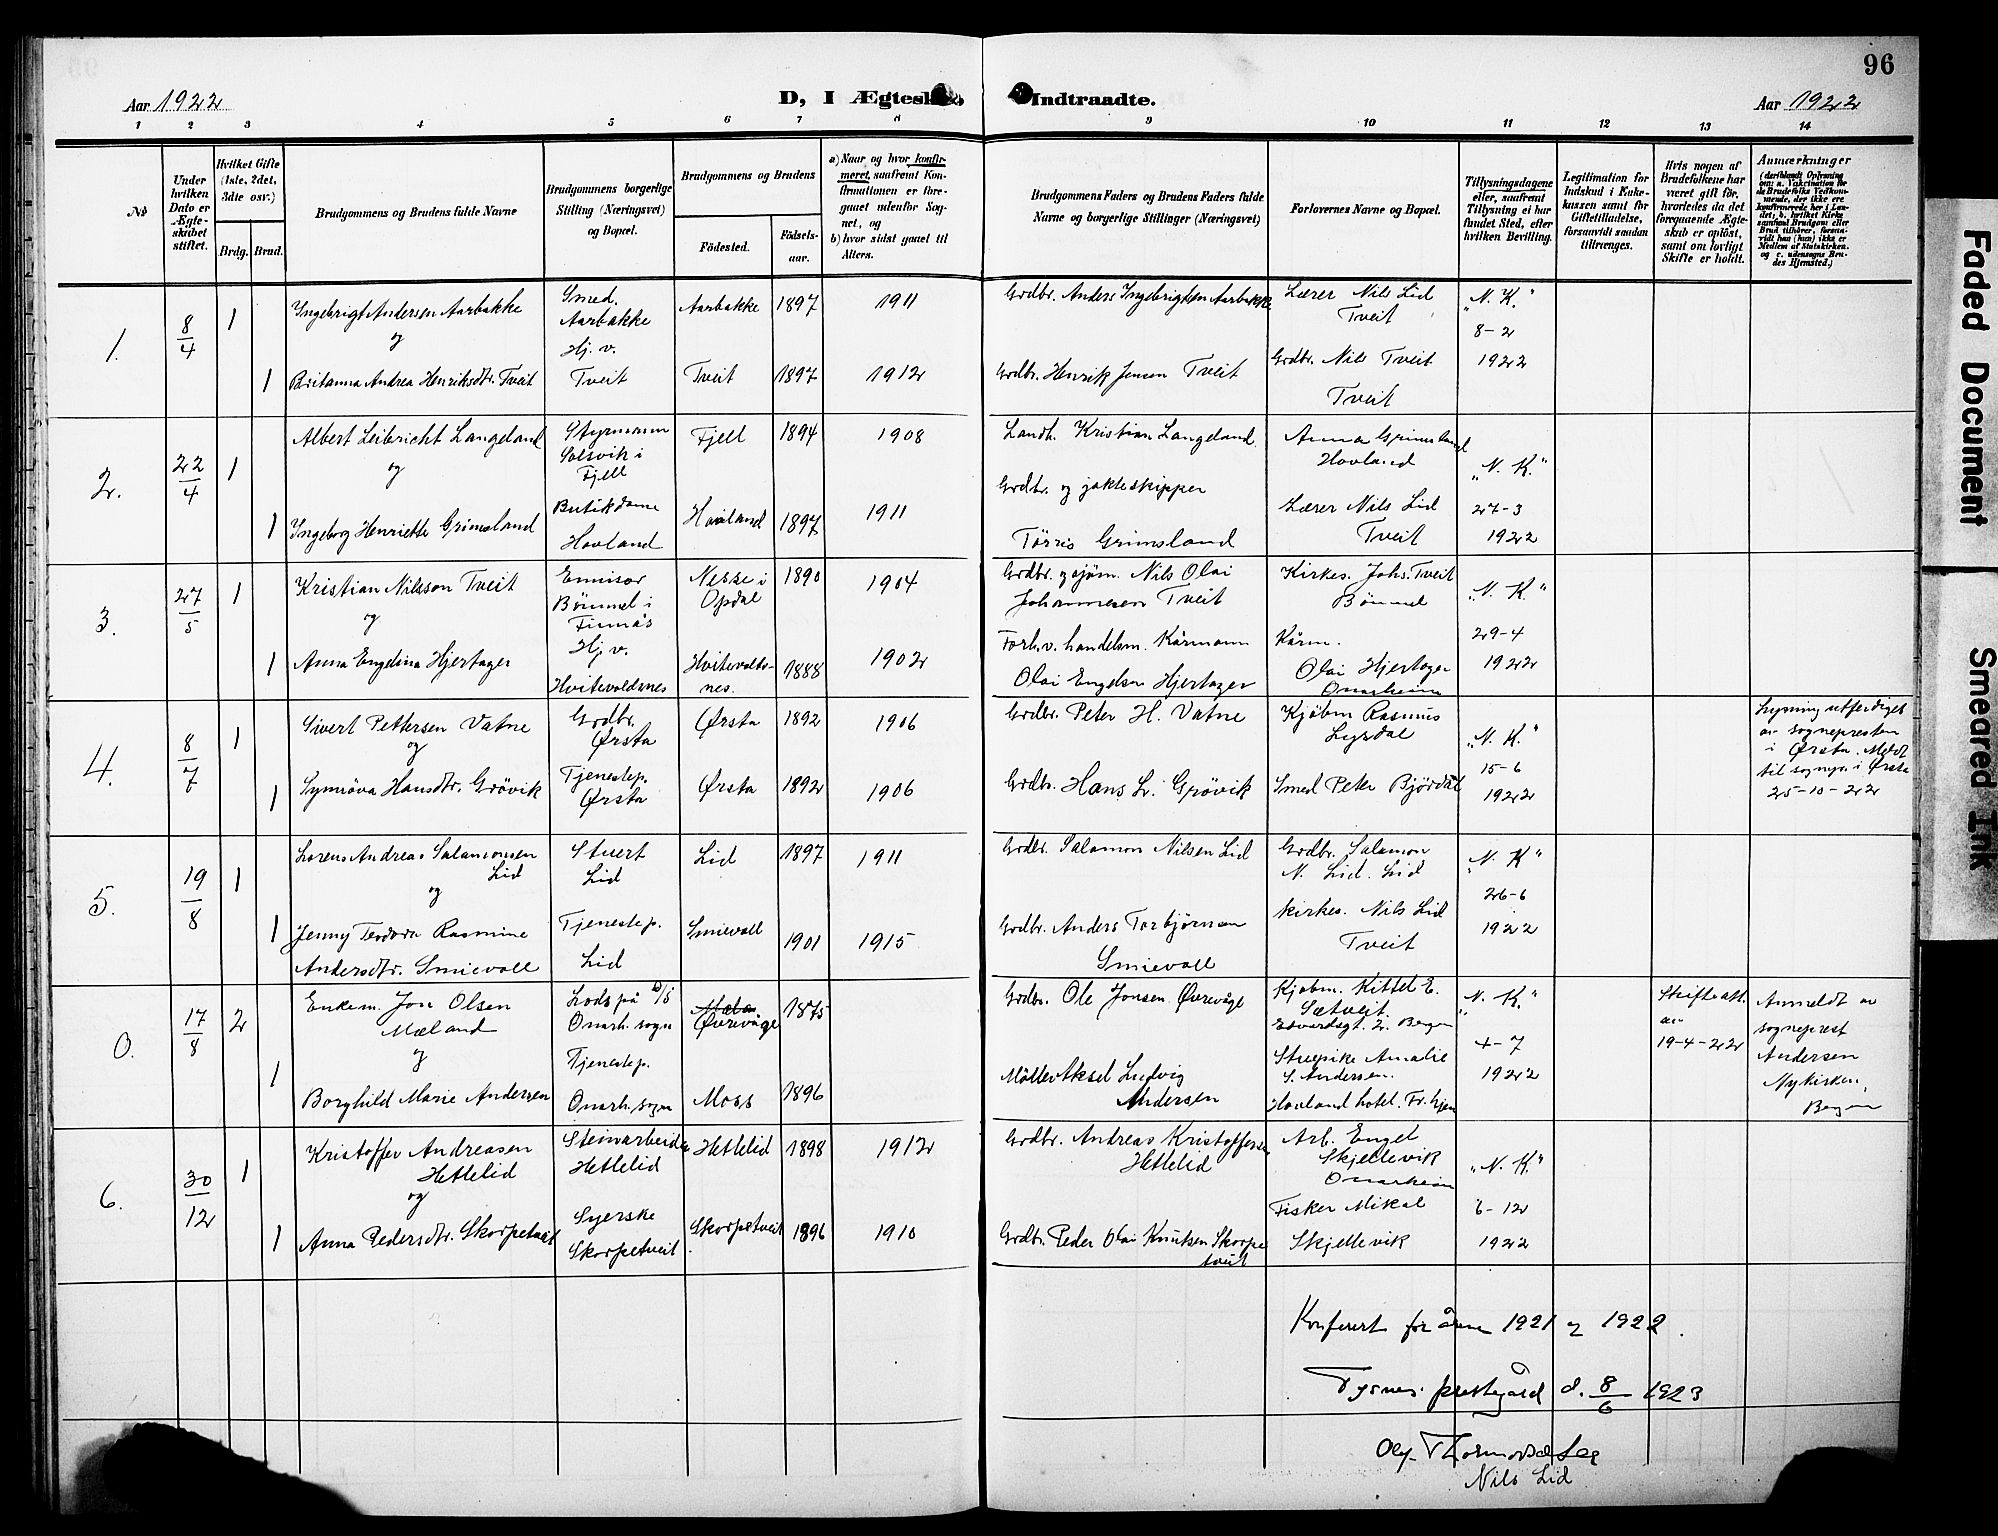 96
Aar 1922
D, I Ægtesk
Indtraadte.
Aar 1922
1 2 3 4 5 6 7 8 9 10 11 12 13 14
№
Under hvilken Dato er Ægteskabet stiftet.
Hvilket Gifte (1ste, 2det, 3die osv.)
Brdg. Brud.
Brudgommens og Brudens fulde Navne
Brudgommens borgerlige Stilling (Næringsvei) og Bopæl.
Brudgommens og Brudens
Födested.
Födselsaar.
a) Naar og hvor konfirmeret, saafremt Konfirmationen er foregaaet udenfor Sognet, og
b) hvor sidst gaaet til Alters.
Brudgommens Faders og Brudens Faders fulde Navne og borgerlige Stillinger (Næringsvei)
Forlovernes Navne og Bopæl.
Tillysningsdagene eller, saafremt Tillysning ei har fundet Sted, efter hvilken Bevilling.
Legitimation for Indskud i Enkekassen samt for Giftetilladelse, forsaavidt saadan tiltrænges.
Hvis nogen af Brudefolkene har været gift för, hvorledes da det foregaaende Ægteskab er oplöst, samt om lovligt Skifte er holdt.
Anmærkninger
(deriblandt Oplysning om: a. Vaccination for de Brudefolks Vedkommende, der ikke ere konfirmerede her i Landet; b. hvilket Kirkesamfund Brudgom eller Brud tilhörer, forsaavidt han (hun) ikke er Medlem af Statskirken, og c. udensogns Brudes Hjemsted.)
1.
8/4
1
Ingebrigt Andersen Aarbakke
og
1
Britanna Andrea Henriksdtr. Tveit
Smed.
Aarbakke
Hj. v.
Tveit
Aarbakke
Tveit
1897
1897
1911
1912
Grdbr. Anders Ingebrigtsen Aarbakke
Grdbr. Henrik Jensen Tveit
Lærer Nils Lid
Tveit
Grdbr. Nils Tveit
Tveit
"N. K."
8-2
1922
2.
22/4
1
Albert Leibricht Langeland
og
1
Ingeborg Henriette Grimsland
Styrmann
Solsvik i
Fjell
Butikdame
Hovland
Fjell
Hovland
1894
1897
1908
1911
Landh. Kristian Langeland
Grdbr. og jakteskipper
Tørris Grimsland
Anna Grimsland
Hovland
Lærer Nils Lid
Tveit
"N. K."
27-3
1922
3.
27/5
1
Kristian Nilsson Tveit
og
1
Anna Engelina Hjertager
Emisær
Bømmel i
Finnås
Hj. v.
Hvitevoldsnes
Nesse i
Opdal
Hvitevoldsnes.
1890
1888
1904
1902
Grdbr. og sjøm. Nils Olai
Johannesen Tveit
Forh. v. handelsm. Kårmann
Olai Engelsn Hjertager
Kirkes. Johs. Tveit
Bømmel
Kårm.
Olai Hjertager
Onarheim
"N. K."
29-4
1922
4.
8/7
1
Sivert Pettersen Vatne
og
1
Synnöva Hansdtr. Grövik
Grdbr.
Ørsta
Tjenestep.
Ørsta
Ørsta
Ørsta
1892
1892
1906
1906
Grdbr. Peter H. Vatne
Grdbr. Hans L. Grövik
Kjøbm Rasmus
Lysdal
Smed Peter Bjørdal
"N. K."
15-6
1922
Lysning utferdiget
av sognepresten
i Ørsta. Meldt
til sognpr. i Ørsta
25-10-22
5.
19/8
1
Lorens Andreas Salamonsen
Lid
og
1
Jenny Teodora Rasmine
Andersdtr. Smievoll
Stuert
Lid
Tjenestep.
Lid
Lid
Smievoll
1897
1901
1911
1915
Grdbr. Salamon Nilsen Lid
Grdbr. Anders Torbjørnsen
Smievoll
Grdbr. Salamon
N. Lid. Lid
Kirkes. Nils Lid
Tveit
"N. K"
26-6
1922
0.
17/8
2
Enkem. Jon Olsen
Mæland
og
1
Borghild Marie Andersen
Lods på D/S
Onarh. sogn
Tjenestep.
Onarh. sogn
Øvrevåge
Moss
1875
1896
Grdbr. Ole Jonsen Øvrevåge
Møller Aksel Ludvig
Andersen
Kjøbm. Kittel E.
Sætveit.
Edvardsgt. 2. Bergen
Stuepike Amalie
S. Andersen.
Hovland hotel.
"N. K."
4-7
1922
Skifteatt.
av
19-4-22
Anmeldt av
sogneprest
Andersen
Nykirken,
Bergen
6.
30/12
1
Kristoffer Andreasen
Hetlelid
og
1
Anna Pedersdtr. Skorpetveit
Steinarbeider
Hetlelid
Syerske
Skorpetveit
Hetlelid
Skorpetveit
1898
1896
1912
1910
Grdbr. Andreas Kristoffersen
Hetlelid
Grdbr. Peder Olai Knutsen Skorpetveit
Arb. Engel
Skjellevik
Onarheim
Fisker Mikal
Skjellevik
"N. K."
6-12
1922
Konferert for årene 1921 og 1922.
Tysnes prestegård d. 8/6 1923
Nils Lid
Faded Document
Smeared Ink